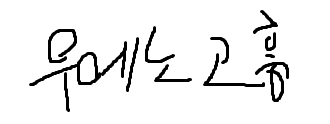 우에노 고흠